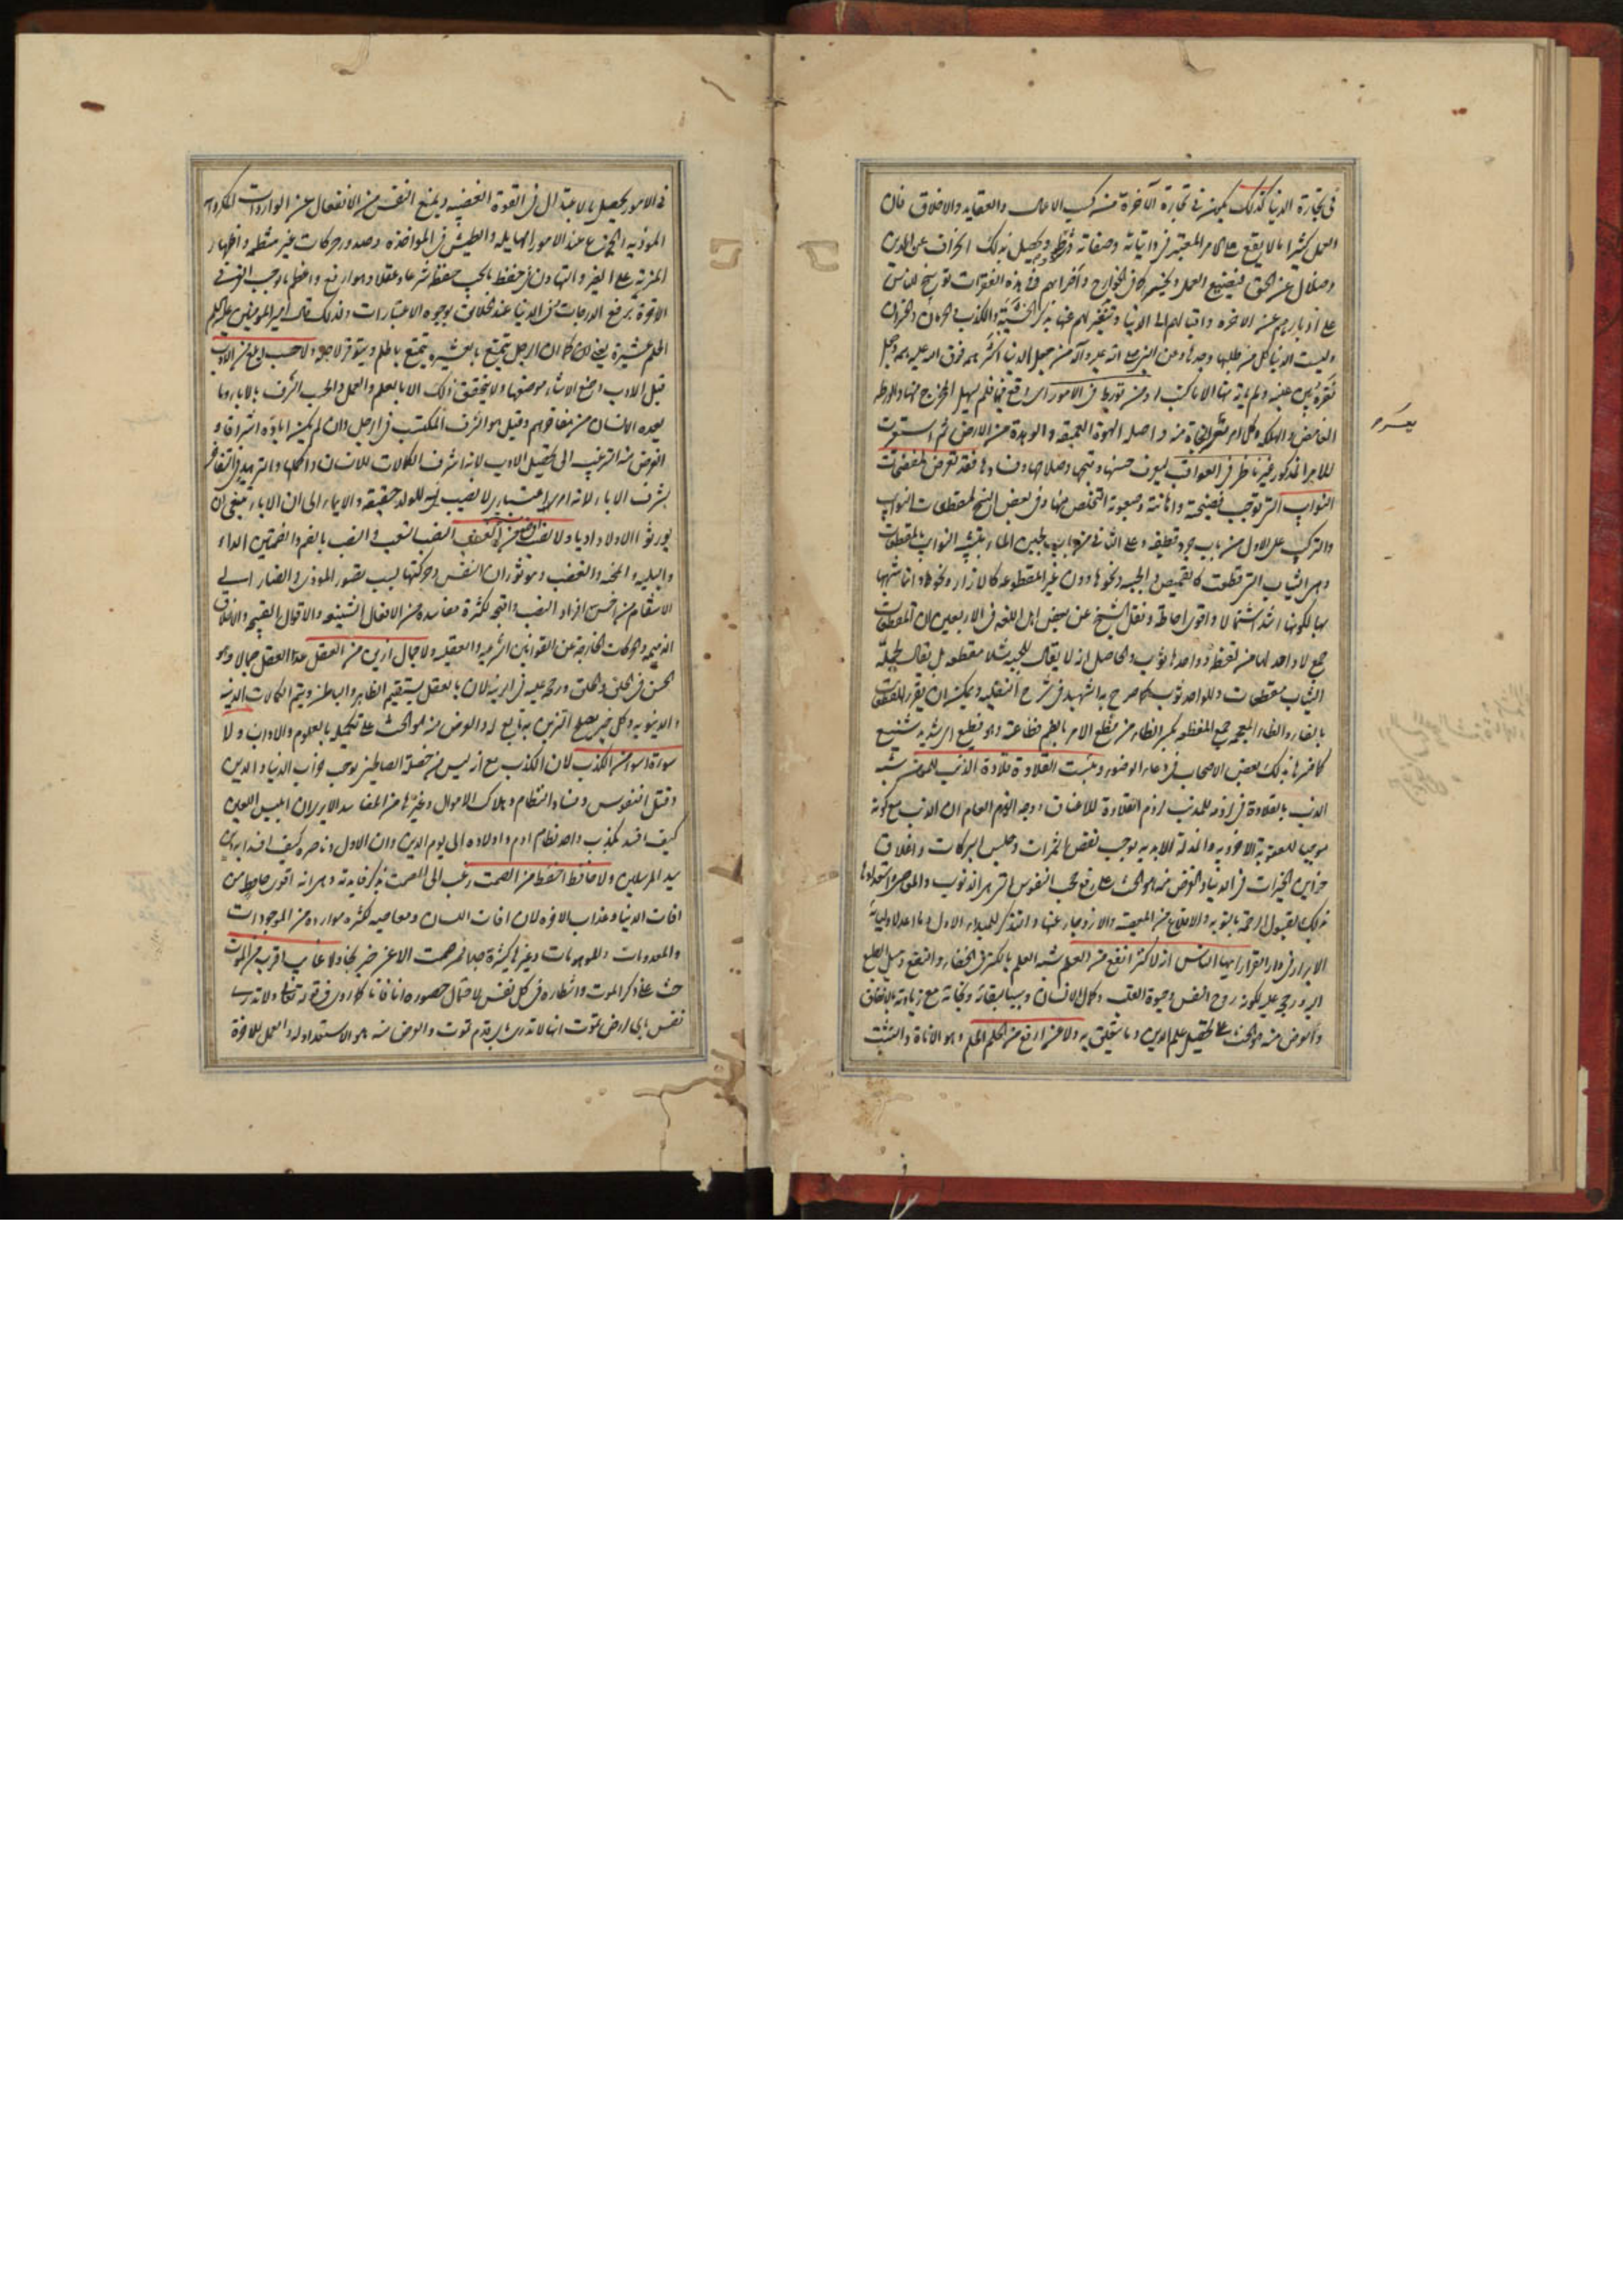 في تجارة الدنيا كذلك يكون في تجارة الآخرة من كسب الاعمال والعقايد والاخلاق فان
العمل كثيرا ما لا يقع على الامر المعتبر في ذاتياته وصفاته وشرايطه
وضلال عن الحق فيضيع العمل ويخسر كما في الخوارج وأضرابهم وفي هذه الفقرات توبيخ للناس
على ادبارهم عن الاخرة واقبالهم الى الدنيا وتنفير لهم عنها
وليست الدنيا كل من طلبها وجدها وعن النبي صلى الله عليه وآله من جعل الدنيا اكثر همه فرق الله عليه همه وجعل
فقره بين عينيه ولم يأته منها الا ما كتب له ومن تورط في الامور اى وقع فيها فلم يسهل المخرج منها والورطة
الغامض والهلكة وكل امر تعسر النجاة منه واصله الهوة العميقة والوهدة من الارض ثم استعيرت
للامر المذكور غير ناظر في العواقب ليعرف حسنها وقبحها وصلاحها وفسادها فقد تعرض لمفضحات
النوائب التى توجب فضيحته واهانته وصعوبة التخلص منها وفي بعض النسخ لمقطعات النوائب
والتركيب على الاول من باب جرد قطيفة وعلى الثاني من باب لجين الماء بتشبيه النوائب بالمقطعات
وهى الثياب التى قطعت كالقميص والجبة ونحوها دون غير المقطوعة كالازار ونحوها وانما شبهها
بها لكونها اشد اشتمالا واقوى احاطة ونقل الشيخ عن بعض اهل اللغة في الاربعين ان المقطعات
جمع لا واحد لها من لفظها وواحدها ثوب والحاصل انه لا يقال للجبة مثلا مقطعة بل يقال لجملة
الثياب مقطعات وللواحد ثوب كما صرح به الشهيد في شرح النفلية ويمكن ان يقرء المفظعات
بالفاء والظاء المعجمة جمع المفظعة بكسر الظاء من فظع الامر بالضم فظاعة وهو فظيع اى شديد شنيع
كما ضبطها بذلك بعض الاصحاب في دعاء الوضوء وبئست القلادة قلادة الذنب للمؤمن شبه
الذنب بالقلادة في لزومه للمذنب لزوم القلادة للاعناق ووجه الذم العام ان الذنب مع كونه
موجبا للعقوبة الاخروية والمذلة الابدية يوجب نقص الثمرات وحبس البركات واغلاق
خزاين الخيرات في الدنيا والغرض منه هو الحث على رفع حجب النفوس التى هى الذنوب والمعاصى واستعدادها
بذلك لقبول الرحمة بالتوبة والاقلاع عن المعصية والازدجار عنها والتذكر للمبدء الاول وما اعد لاوليائه
الابرار في دار القرار ايها الناس انه لا كنز انفع من العلم شبه العلم بالكنز في الخفاء والنفع وميل الطبع
اليه ورجح عليه لكونه روح النفس وحيوة القلب وكمال الانسان وسببا لبقائه ونجاته مع زيادته بالانفاق
والغرض منه هو الحث على تحصيل علم الدين وما يتعلق به ولا عز ارفع من الحلم الحلم وهو الاناة والتثبت
يعسر
في الامور يحصل بالاعتدال في القوة الغضبية ويمنع النفس من الانفعال عن الواردات المكروهة
الموذية والجزع عند الامور الهايلة والطيش في المواخذة وصدور حركات غير منتظمة واظهار
المزية على الغير والتهاون في حفظ ما يجب حفظه شرعا وعقلا وهو ارفع واعظم ما يوجب العز في
الاخرة برفع الدرجات وفي الدنيا عند الخلائق بوجوه الاعتبارات ولذلك قال امير المومنين عليه السلام
الحلم عشيرة يعنى ان كما ان الرجل يتمتع بالعشيرة يتمتع بالحلم ويتوقر لاجله ولا حسب ابلغ من الادب
قيل الادب وضع الاشياء موضعها ولا يتحقق ذلك الا بالعلم والعمل والحسب الشرف بالاباء وما
يعده الانسان من مفاخرهم وقيل هو الشرف المكتسب في الرجل وان لم يكن اباؤه اشرافا و
الغرض منه الترغيب الى تحصيل الادب لانه اشرف الكمالات للانسان واكملها والتزهيد في التفاخر
بشرف الاباء لانه امر اعتبارى لا نصيب فيه للولد حقيقة والايماء الى ان الاباء ينبغى ان
يورثوا الاولاد ادبا ولا نصب اوضع من الغضب النصب التعب والنصب بالضم وبضمتين الداء
والبلية والمحنة والغضب وهو ثوران النفس وحركتها بسبب تصور الموذى والضار الى
الانتقام من اخس افراد النصب واقبحه لكثرة مفاسده من الافعال الشنيعة والاقوال القبيحة والاخلاق
الذميمة والحركات الخارجة عن القوانين الشرعية والعقلية ولا جمال ازين من العقل عد العقل جمالا وهو
الحسن في الخلق والخلق ورجحه عليه في الزينة لان بالعقل يستقيم الظاهر والباطن ويتم الكمالات الدينية
والدنيوية وكل خير يصلح التزين به تابع له والغرض منه هو الحث على تكميله بالعلوم والاداب ولا
سوءة اسوء من الكذب لان الكذب مع انه ليس من خصلة الصالحين يوجب خراب الدنيا والدين
وقتل النفوس وفساد النظام وهلاك الاموال وغيرها من المفاسد الا يرى ان ابليس اللعين
كيف افسد بكذب واحد نظام ادم واولاده الى يوم الدين وان الاول وناصره كيف افسدا دين
سيد المرسلين ولا حافظ احفظ من الصمت رغب الى الصمت بذكر فايدته وهى انه اقوى حافظ من
افات الدنيا وعذاب الاخرة لان افات اللسان ومعاصيه كثيرة موارده من الموجودات
والمعدومات والموهومات وغيرها كثيرة جدا فمن صمت الا عن خير نجا ولا غايب اقرب من الموت
حث على ذكر الموت وانتظاره في كل نفس لاحتمال حضوره انا فانا كما روى في قوله تعالى ولا تدرى
نفس باى ارض تموت انها لا تدرى باى قدم تموت والغرض منه هو الاستعداد له والعمل للاخرة